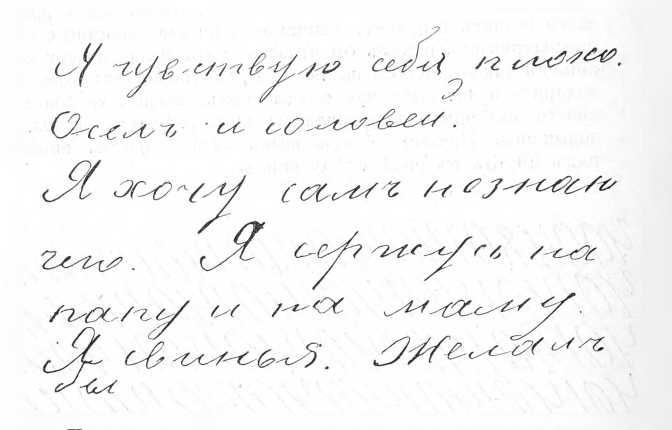 Я чувствую себя плохо.
Оселъ и соловей?
Я хочу самъ незнаю
чего. Я сержусь на
папу и на маму.
Я свинья. Желалъ
бы